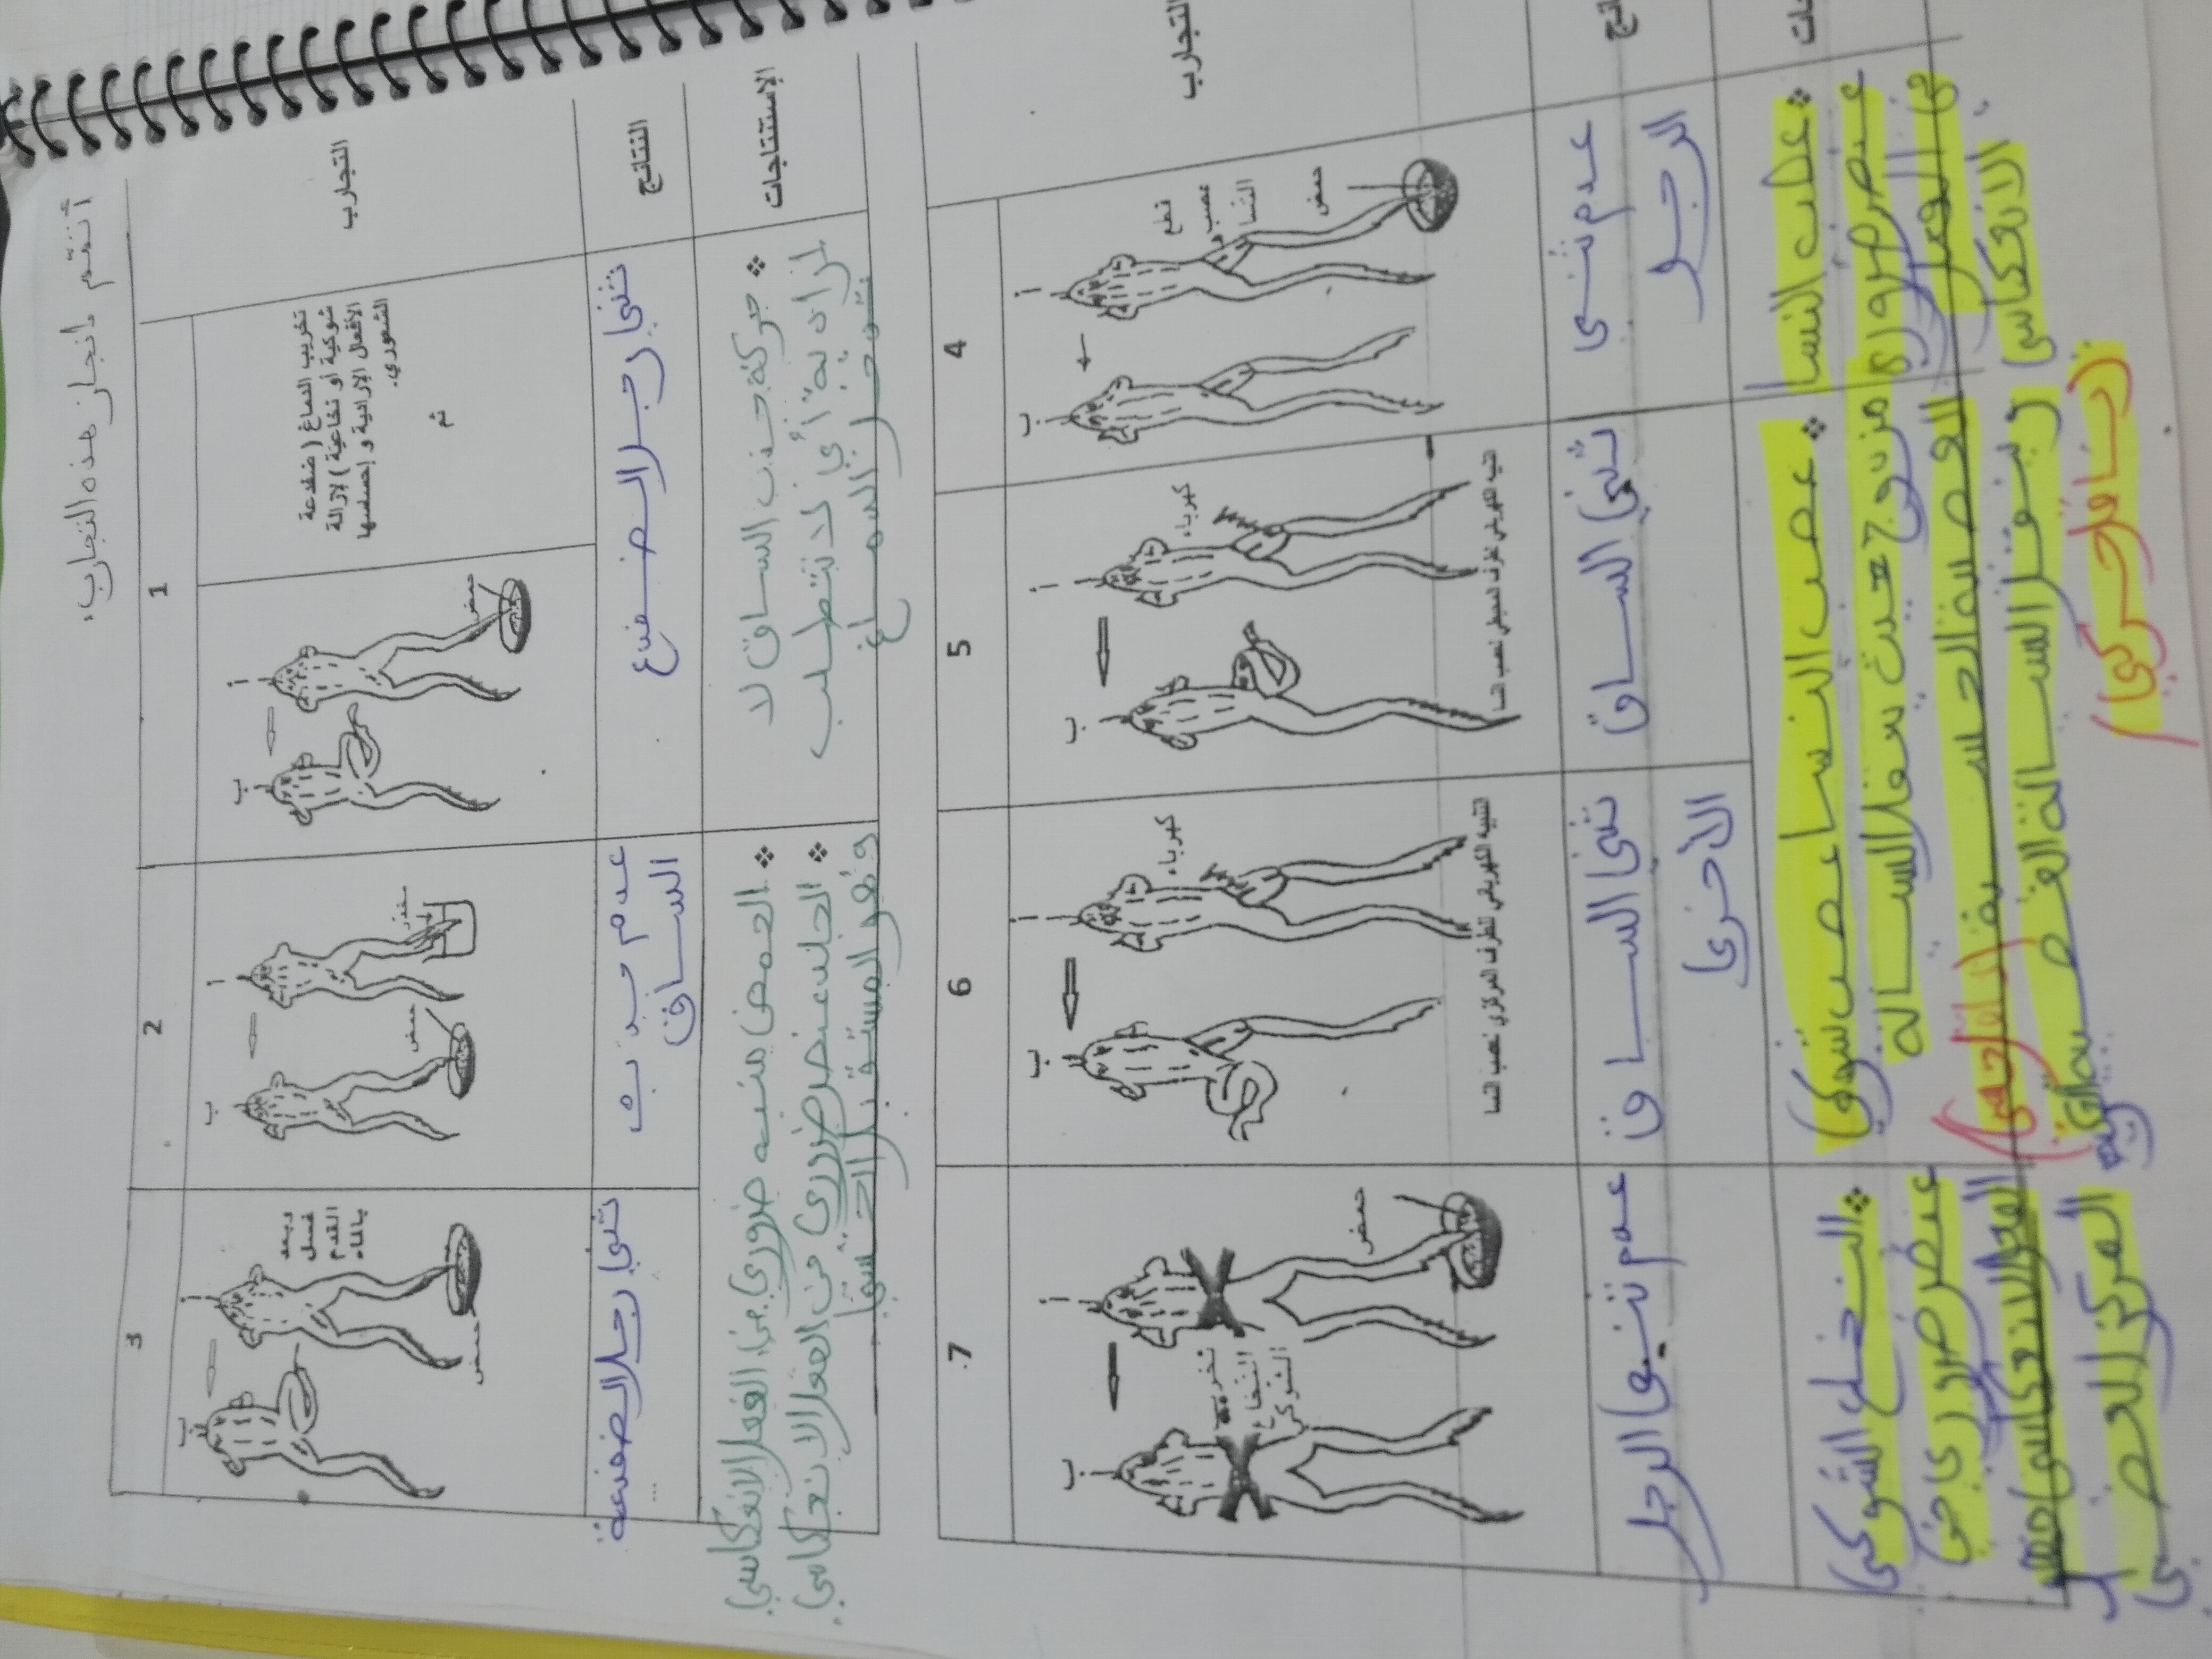 أنتقم إنجاز هذه التجارب.
التجارب
1
2
3
تخريب الدماغ (ضفدعة
شوكية أو نخاعية) لإزالة
الأفعال الإرادية و إحساسها
الشعوري.
ثم
أ
ب
حمض
أ
ب
مخدر
حمض
أ
ب
وبعد
غسل
القدم
بالماء
حمض
النتائج
ثني رجل الضفدع
عدم جذب
الساق
ثني رجل الضفدعة
...
الإستنتاجات
❖ حركة جذب الساق لا
إرادية أي لا تتطلب
تدخل الدماغ
❖ الحمض منبه ضروري في الفعل الانعكاسي
❖ الجلد عنصر ضروري من الفعل الانعكاسي
وهو المستقبل الحسي
التجارب
4
5
6
7
أ
ب
قطع
عصب
النسا
حمض
أ
ب
كهرباء
التنبيه الكهربائي للطرف المحيطي لعصب النسا
أ
ب
كهرباء
التنبيه الكهربائي للطرف المركزي لعصب النسا
أ
ب
تخريب
النخاع
الشوكي
حمض
عدم ثني
الرجل
ثني الساق
ثني الساق
الأخرى
عدم ثني الرجل
❖ عصب النسا
عنصر ضروري
في الفعل
الانعكاسي
❖ عصب النسا عصب شوكي
مزدوج حيث ينقل السيالة
العصبية الحسية (ناقل حسي)
وينقل السيالة العصبية الحركية
(ناقل حركي)
❖ النخاع الشوكي
عنصر ضروري في
الفعل الانعكاسي
المركز العصبي